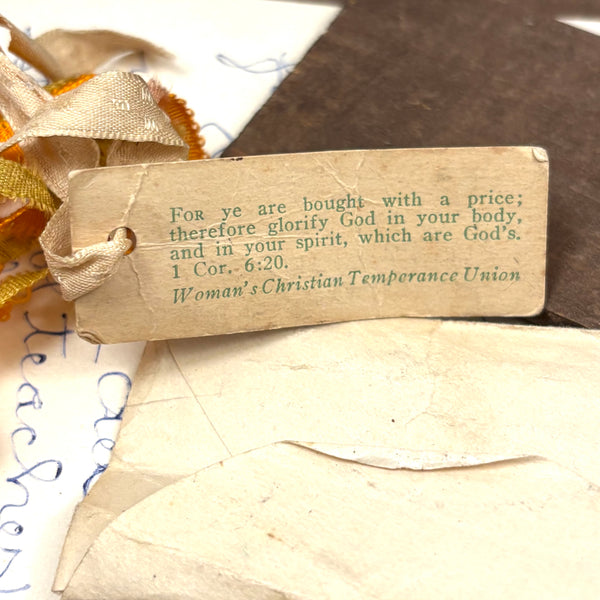 FOR ye are bought with a price;
therefore glorify God in your body,
and in your spirit, which are God's.
1 Cor. 6:20.
Woman's Christian Temperance Union
teacher